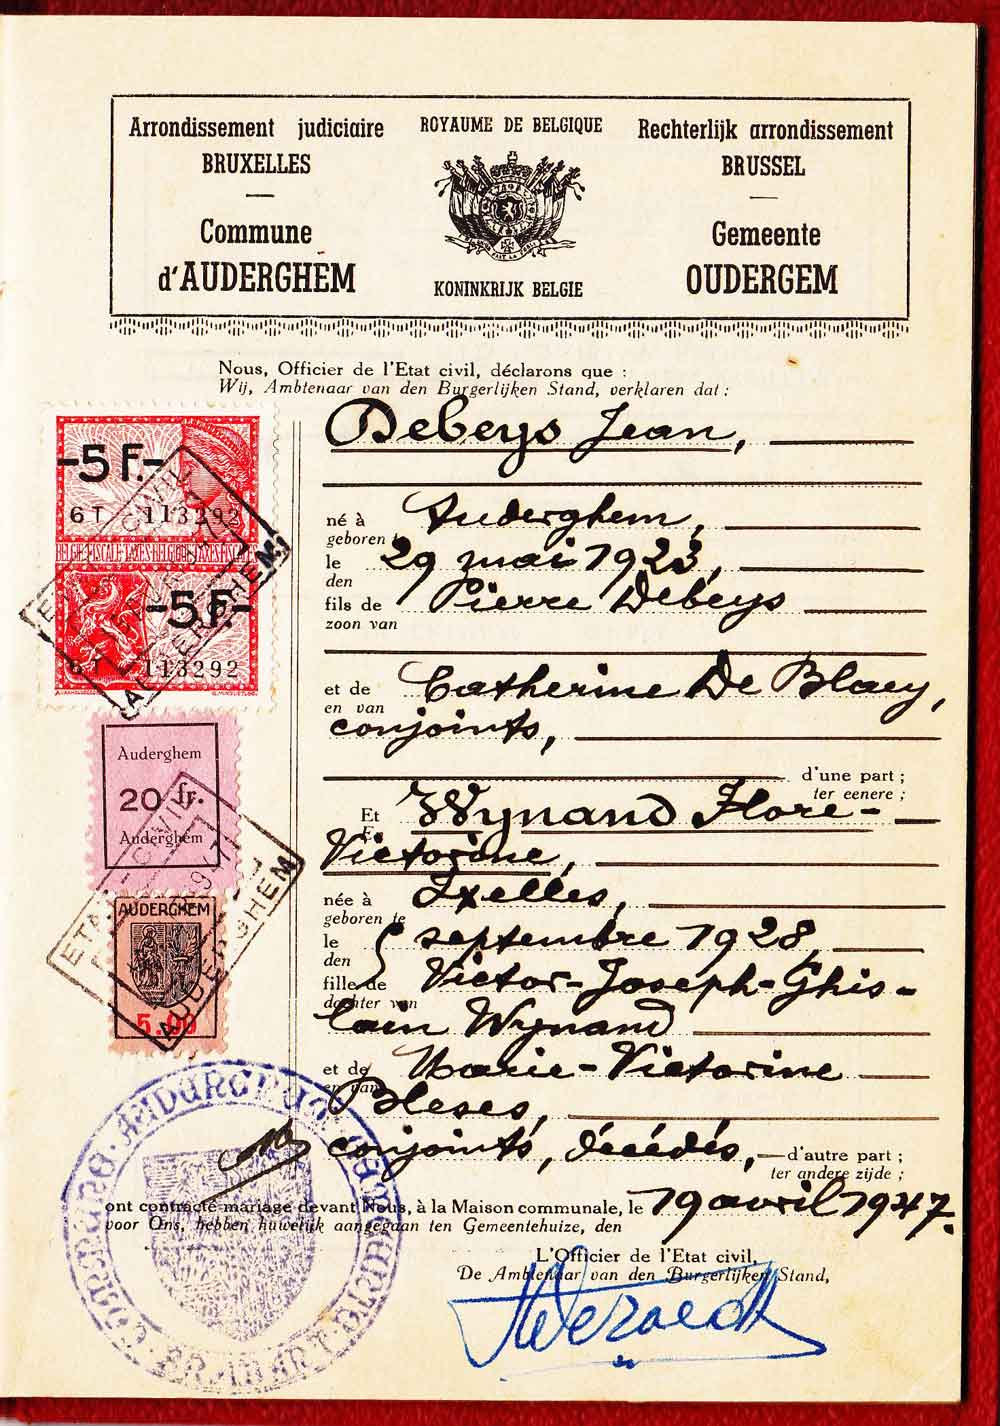 Arrondissement judiciaire
BRUXELLES
Commune
d'AUDERGHEM
ROYAUME DE BELGIQUE
KONINKRIJK BELGIE
Rechterlijk arrondissement
BRUSSEL
Gemeente
OUDERGEM
Nous, Officier de l'Etat civil, déclarons que :
Wij, Ambtenaar van den Burgerlijken Stand, verklaren dat :
Debeys Jean,
né à Auderghem,
geboren te
le 29 mai 1923,
den
fils de Pierre Debeys
zoon van
et de Catherine De Blaey,
en van
conjoints,
d'une part ;
ter eenere ;
Et Wynand Flore-
En
Victorine,
née à Ixelles,
geboren te
le 5 septembre 1928,
den
fille de Victor-Joseph-Ghis-
dochter van
lain Wynand
et de Marie-Victorine
en van
Bleses,
conjoints, décédés, d'autre part ;
ter andere zijde ;
ont contracté mariage devant Nous, à la Maison communale, le 19 avril 1947.
voor Ons, hebben huwelijk aangegaan ten Gemeentehuize, den
L'Officier de l'Etat civil,
De Ambtenaar van den Burgerlijken Stand,
-5 F.-
6 T 113292
BELGIE-FISCALE-TAXES-BELGIQUE-TAXES-FISCALES
-5 F.-
6 T 113292
Auderghem
20 fr.
Auderghem
AUDERGHEM
5.00
ETAT CIVIL
AUDERGHEM
ETAT CIVIL
AUDERGHEM